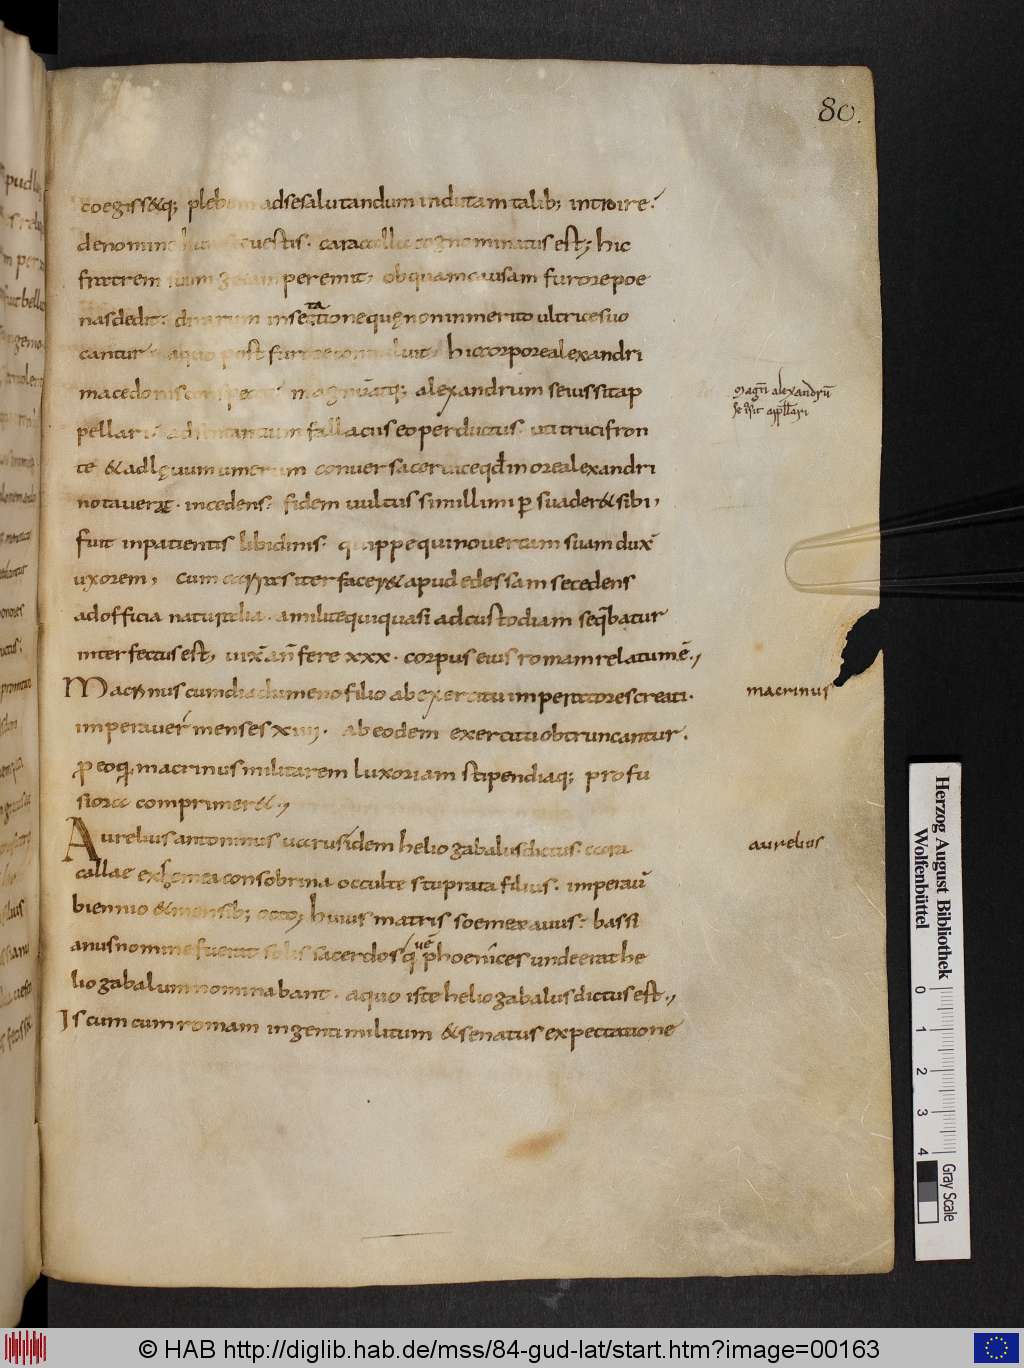 80.
coegiss&q; plebem adsesalutandum indutam talib; introire.
denomine huius uestis. caracalla cognominatus est; hic
fratrem suum getam peremit; obquam causam furore poe
nas dedit. dirarum insectatione quę non inmerito ultrices uo
cantur. aquo post furore conualuit; hic corpore alexandri
macedonis conspecto magnū atq; alexandrum se iussit ap
pellari. adsentantium fallaciis eo perductus. uti truci fron
te & ad lęuum umerum conuersa ceruice qd̄ in ore alexandri
notauerat. incedens. fidem uultus simillimi persuader& sibi,
fuit inpatientis libidinis. quippe qui nouercam suam dux̄
uxorem, cum carras iter facer& apud edessam secedens
ad officia naturalia. a milite qui quasi ad custodiam seq̄batur
interfectus est, uix̄ an̄ fere xxx. corpus eius romam relatum ē.,
Macrinus cum diadumeno filio ab exercitu imperatores creati.
imperauer̄ menses xiiii. ab eodem exercitu obtruncantur.
p eo qđ macrinus militarem luxoriam stipendiaq; profu
siora comprimer&.,
Aurelius antoninus uarus idem heliogabalus dictus. cara
callae ex soemea consobrina occulte stuprata filius. imperau̅
biennio & mensib; octo; huius matris soemea auus. bassi
anus nomine fuerat solis sacerdos que̅ phoenices unde erat he
liogabalum nominabant. aquo iste heliogabalus dictus est.,
Is cum cum romam ingenti militum & senatus expectatione
magn̄ alexandrū
se iussit appellari
macrinus
aurelius
Herzog August Bibliothek
Wolfenbüttel
0 1 2 3 4
Gray Scale
© HAB http://diglib.hab.de/mss/84-gud-lat/start.htm?image=00163